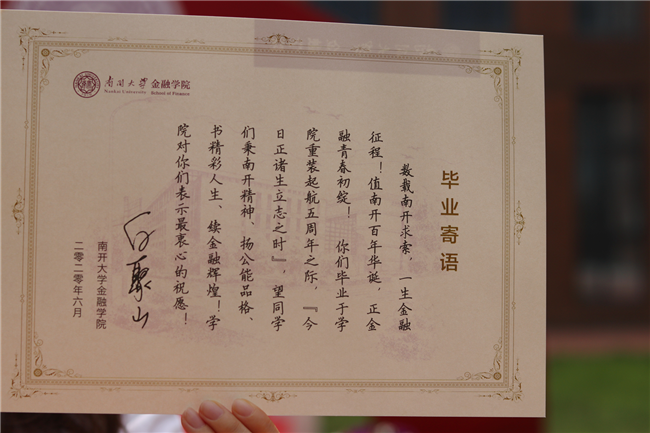 南開大學 金融学院
Nankai University School of Finance
毕业寄语
数载南开求索，一生金融
征程！值南开百年华诞，正金
融青春初绽！ 你们毕业于学
院重装起航五周年之际，『今
日正诸生立志之时』，望同学
们秉南开精神、扬公能品格、
书精彩人生、续金融辉煌！学
院对你们表示最衷心的祝愿！
白聚山
南开大学金融学院
二零二零年六月